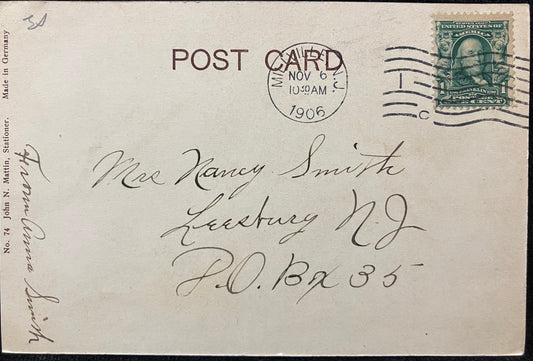 3d
POST CARD
MILLVILLE, N.J.
NOV 6
10 30 AM
1906
C
UNITED STATES OF
AMERICA
POSTAGE
1 CENT 1
Mrs Nancy Smith
Leesburg N J
P.O. Bx 35
From Anna Smith
No. 74 John N. Mattin, Stationer. Made in Germany